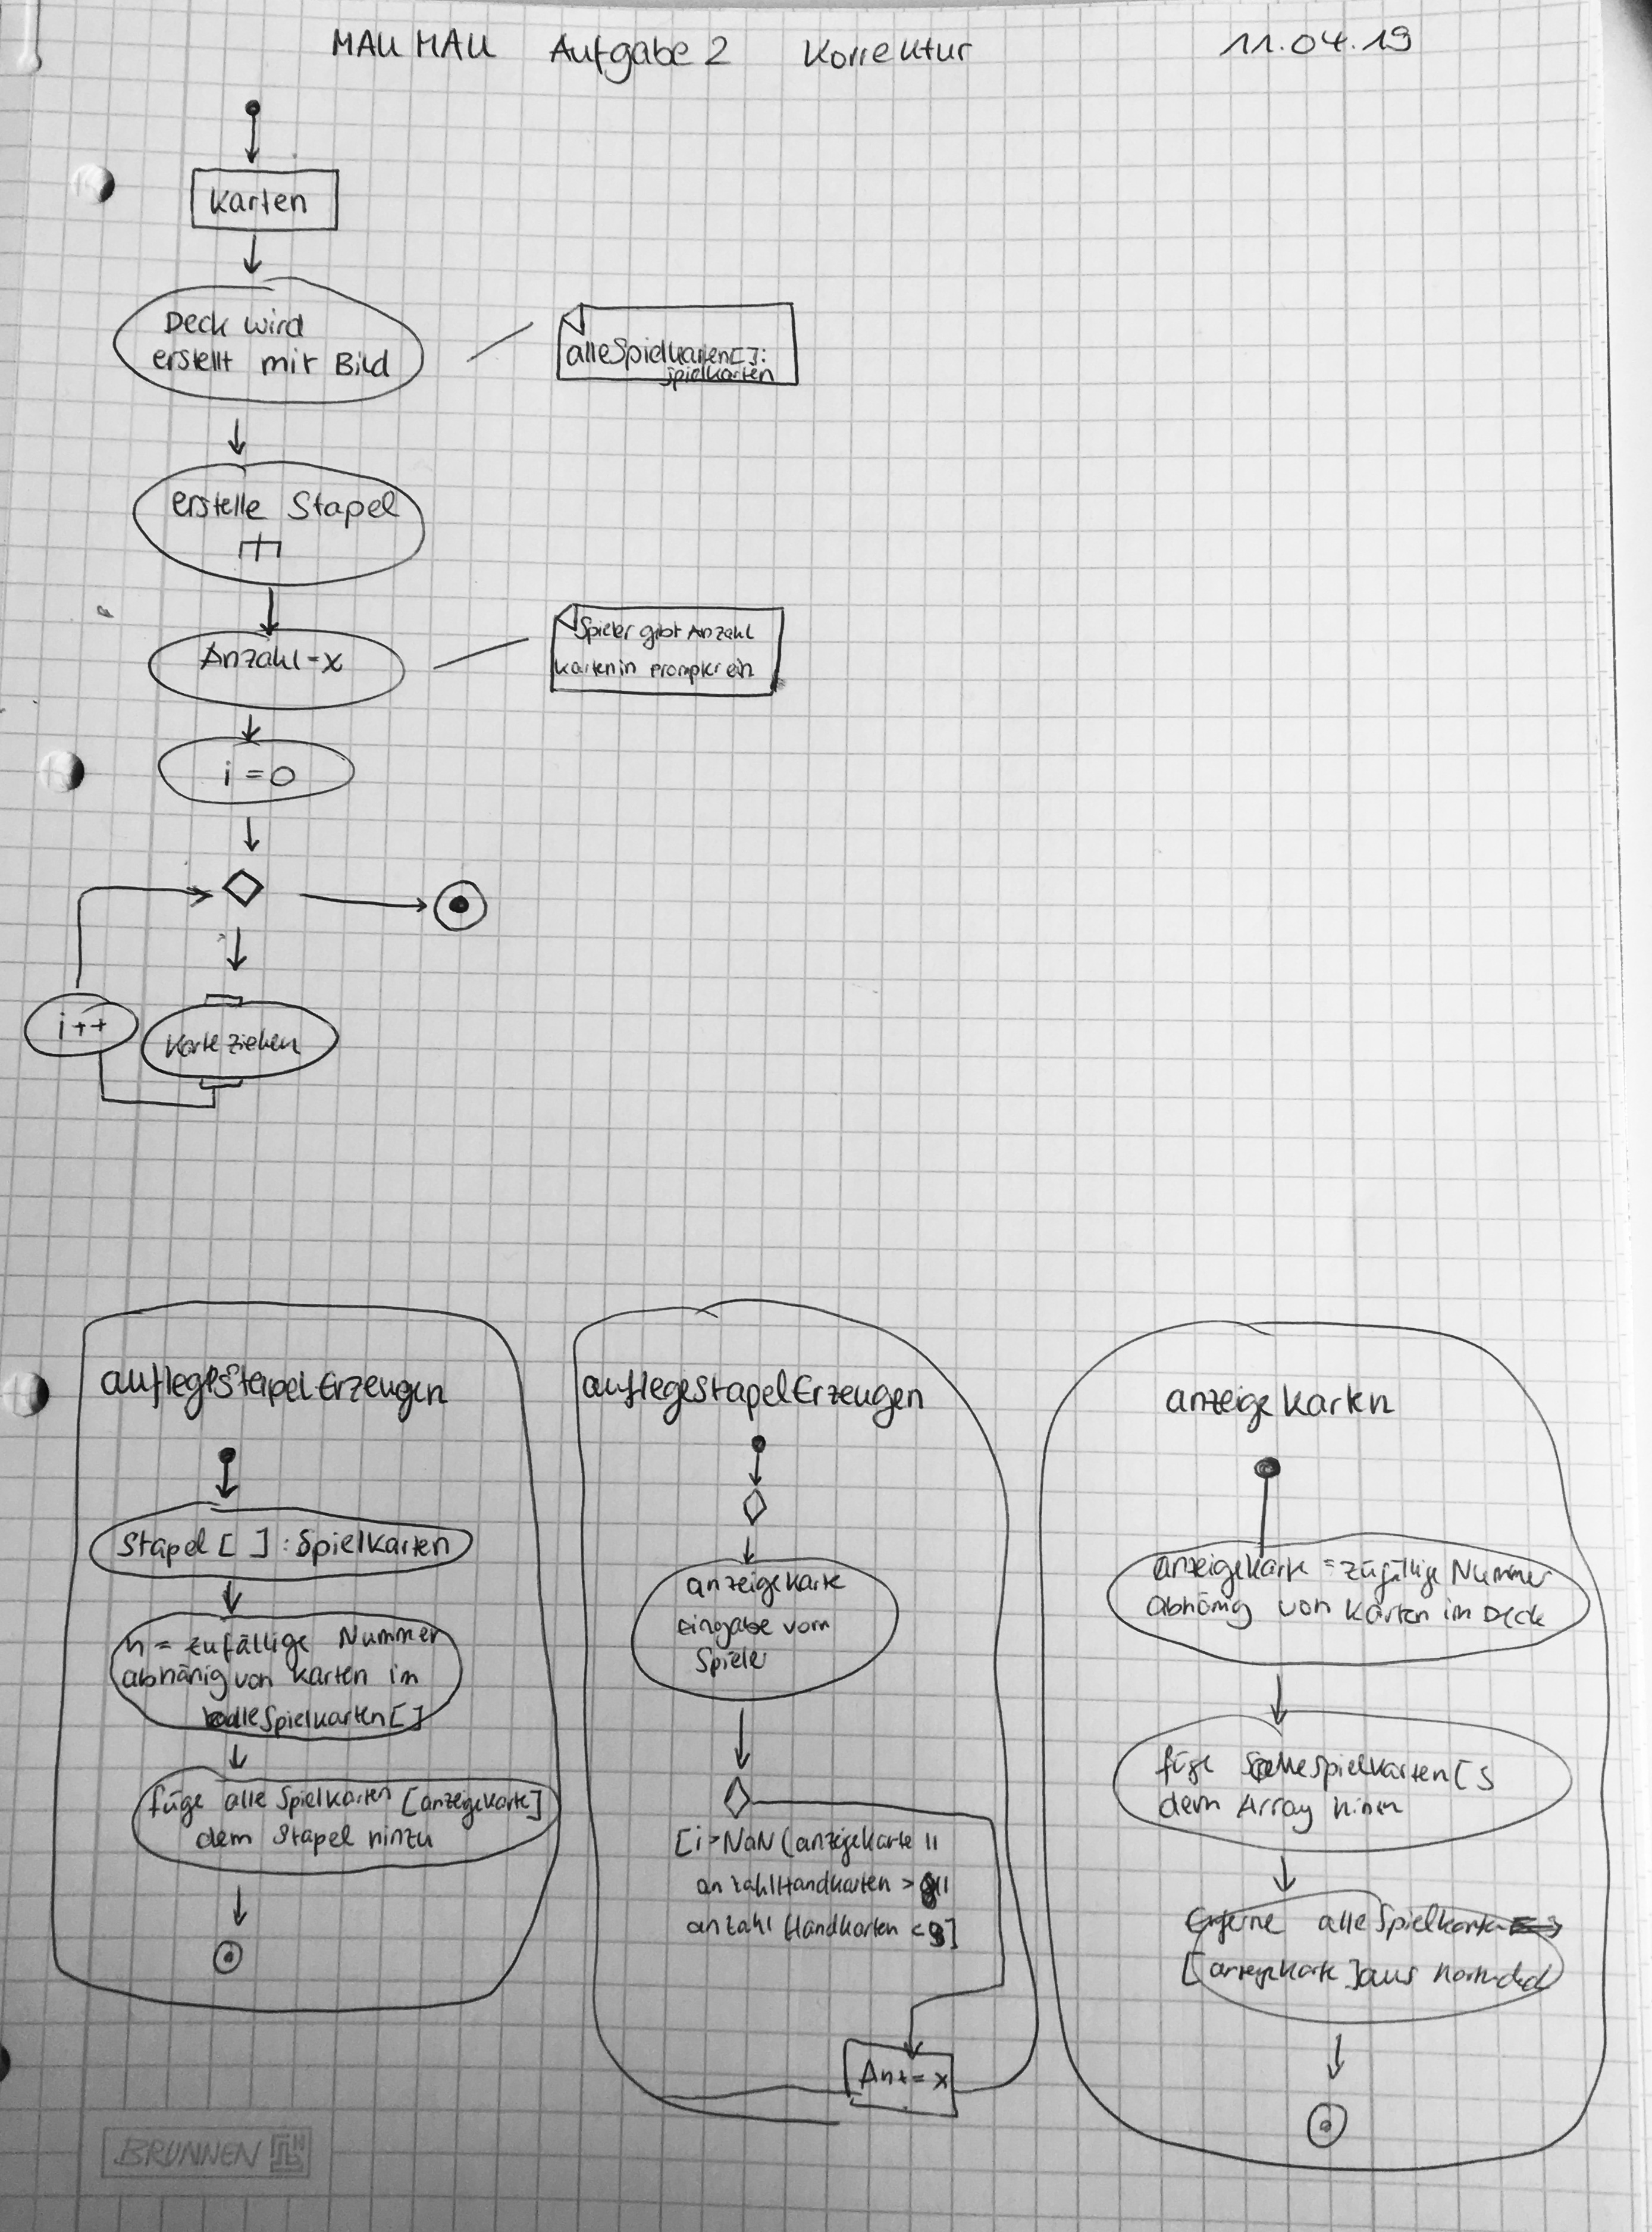 MAU MAU Aufgabe 2 Korrektur 11.04.19
Karten
Deck wird
erstellt mit Bild
alleSpielkarten[]:
spielkarten
erstelle Stapel
Anzahl=x
Spieler gibt Anzahl
Karten in ein
i=0
i++
Karte ziehen
auflegeStapelErzeugen
Stapel[ ]:Spielkarten
n = zufällige Nummer
abhänig von Karten im
alleSpielkarten[]
füge alle Spielkarten [anzeigekarte]
dem Stapel hinzu
auflegestapelErzeugen
anzeigekarte
eingabe vom
Spieler
NaN(anzeigekarte ||
anzahlHandkarten >
anzahl Handkarten <
= x
anzeige Karten
anzeigekarte = zufällige Nummer
abhänig von Karten im Deck
füge spielkarten[
dem Array
alle Spielkarte
[anzeigekarte] aus
BRUNNEN